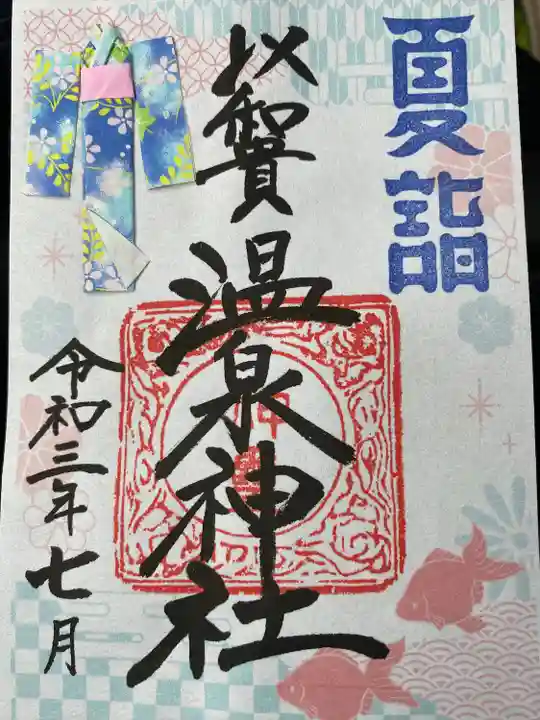 夏詣
以賀
温泉神社
令和三年七月
神